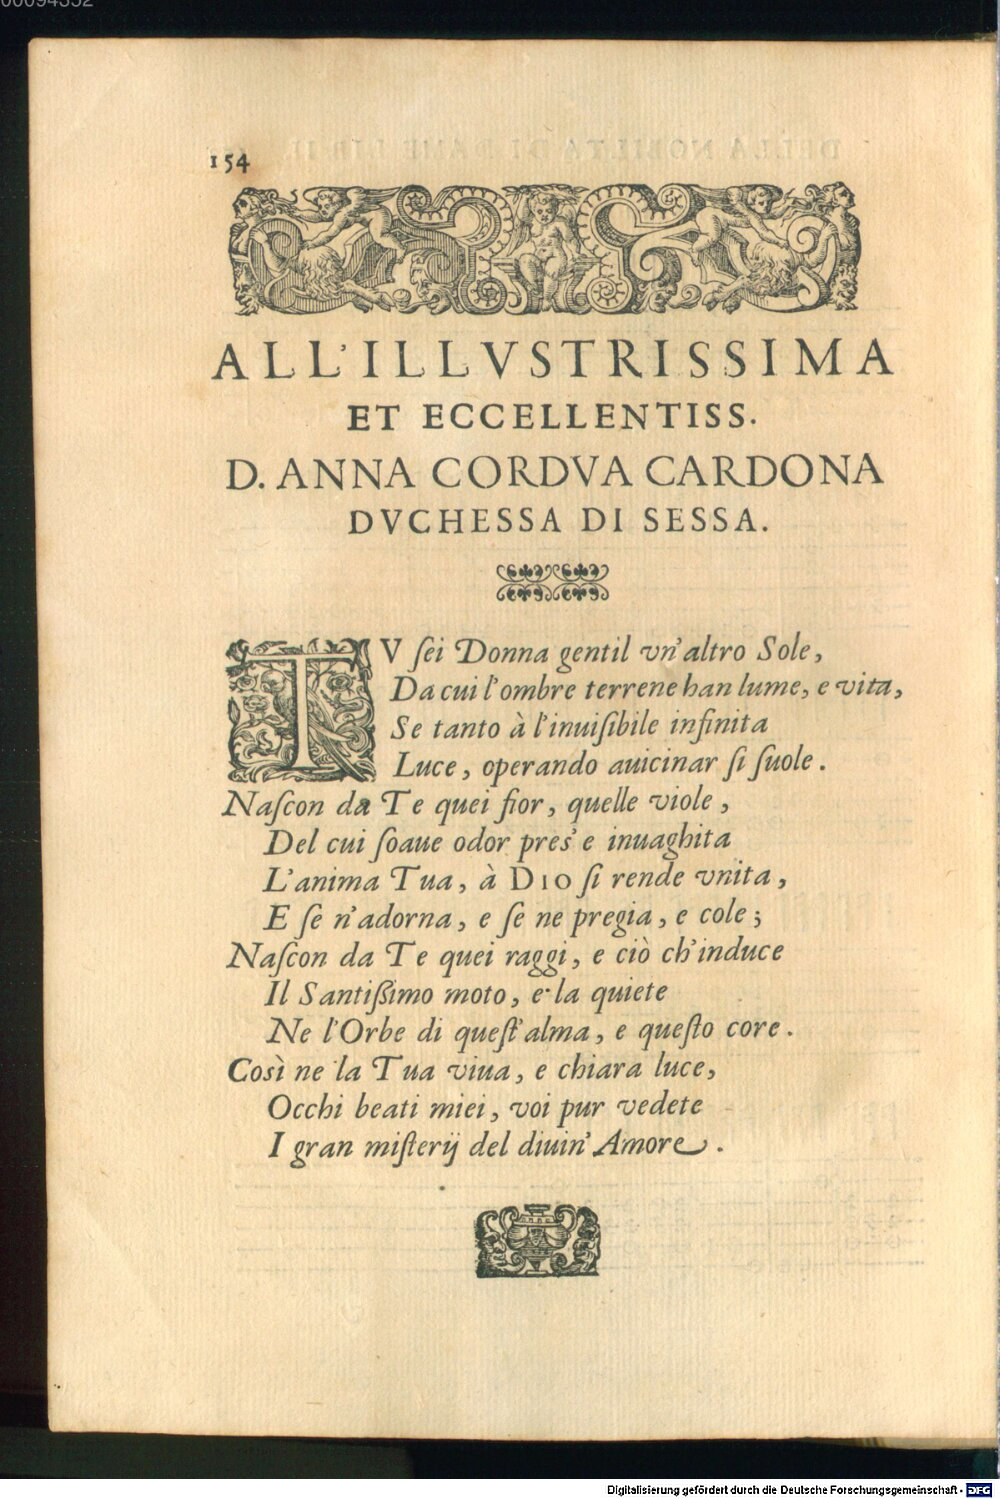 154
ALL'ILLVSTRISSIMA
ET ECCELLENTISS.
D. ANNA CORDVA CARDONA
DVCHESSA DI SESSA.
TV ſei Donna gentil vn'altro Sole,
Da cui l'ombre terrene han lume, e vita,
Se tanto à l'inuiſibile infinita
Luce, operando auicinar ſi ſuole.
Naſcon da Te quei fior, quelle viole,
Del cui ſoaue odor pres' e inuaghita
L'anima Tua, à DIO ſi rende vnita,
E ſe n'adorna, e ſe ne pregia, e cole;
Naſcon da Te quei raggi, e ciò ch'induce
Il Santiſſimo moto, e la quiete
Ne l'Orbe di queſt'alma, e queſto core.
Così ne la Tua viua, e chiara luce,
Occhi beati miei, voi pur vedete
I gran miſterij del diuin' Amore.
Digitalisierung gefördert durch die Deutsche Forschungsgemeinschaft - DFG